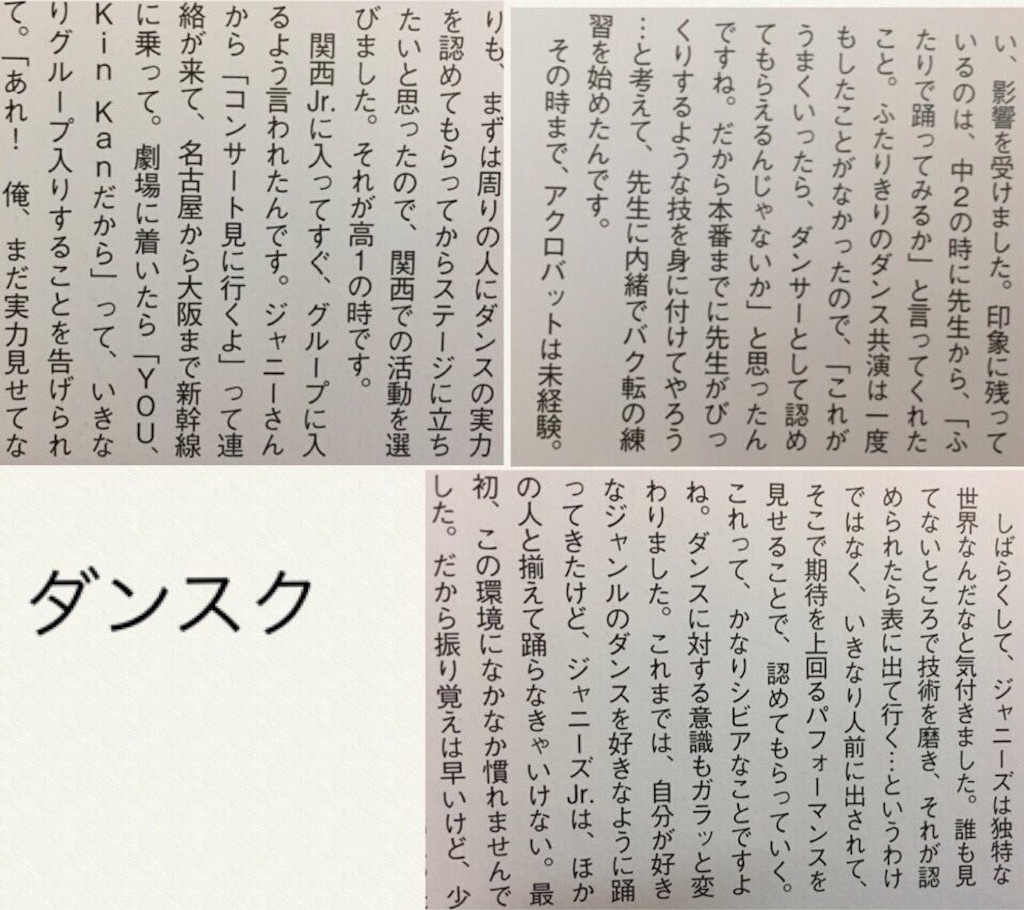 い、影響を受けました。印象に残って
いるのは、中2の時に先生から、「ふ
たりで踊ってみるか」と言ってくれた
こと。ふたりきりのダンス共演は一度
もしたことがなかったので、「これが
うまくいったら、ダンサーとして認め
てもらえるんじゃないか」と思ったん
ですね。だから本番までに先生がびっ
くりするような技を身に付けてやろう
…と考えて、先生に内緒でバク転の練
習を始めたんです。
その時まで、アクロバットは未経験。
りも、まずは周りの人にダンスの実力
を認めてもらってからステージに立ち
たいと思ったので、関西での活動を選
びました。それが高1の時です。
関西Jr.に入ってすぐ、グループに入
るよう言われたんです。ジャニーさん
から「コンサート見に行くよ」って連
絡が来て、名古屋から大阪まで新幹線
に乗って。劇場に着いたら「YOU、
Kin Kanだから」って、いきな
りグループ入りすることを告げられ
て。「あれ！ 俺、まだ実力見せてな
しばらくして、ジャニーズは独特な
世界なんだなと気付きました。誰も見
てないところで技術を磨き、それが認
められたら表に出て行く…というわけ
ではなく、いきなり人前に出されて、
そこで期待を上回るパフォーマンスを
見せることで、認めてもらっていく。
これって、かなりシビアなことですよ
ね。ダンスに対する意識もガラッと変
わりました。これまでは、自分が好き
なジャンルのダンスを好きなように踊
ってきたけど、ジャニーズJr.は、ほか
の人と揃えて踊らなきゃいけない。最
初、この環境になかなか慣れませんで
した。だから振り覚えは早いけど、少
ダンスク